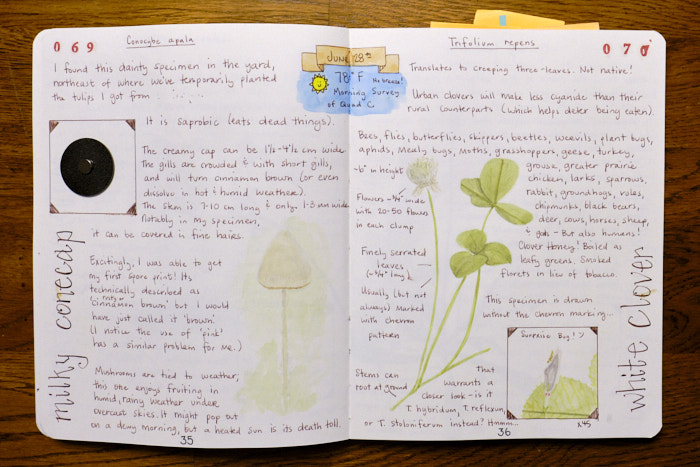 069
Conocybe apala
I found this dainty specimen in the yard,
northeast of where we've temporarily planted
the tulips I got from
It is saprobic (eats dead things).
The creamy cap can be 1½-4½ cm wide.
The gills are crowded & with short gills,
and will turn cinnamon brown (or even
dissolve in hot & humid weather).
The stem is 7-10 cm long & only 1-3 mm wide.
Notably in my specimen,
it can be covered in fine hairs.
Excitingly, I was able to get
my first spore print! Its
technically described as
"cinnamon brown" but I would
have just called it "brown"
(I notice the use of "pink"
has a similar problem for me.)
Mushrooms are tied to weather,
this one enjoys fruiting in
humid, rainy weather under
overcast skies. It might pop out
on a dewy morning, but a heated sun is its death toll.
milky conecap
35
JUNE 28th
78°F No breeze!
Morning Survey
of Quad C.
070
Trifolium repens
Translates to creeping three-leaves. Not native!
Urban clovers will make less cyanide than their
rural counterparts (which helps deter being eaten).
Bees, flies, butterflies, skippers, beetles, weevils, plant bugs,
aphids, Mealy bugs, Moths, grasshoppers, geese, turkey,
grouse, greater prairie
chicken, larks, sparrows,
rabbit, groundhogs, voles,
chipmunks, black bears,
deer, cows, horses, sheep,
& goats - But also humans!
Clover Honey! Boiled as
leafy greens. Smoked
florets in lieu of tobacco.
~6" in height
Flowers ~¾" wide
with 20-50 flowers
in each clump
Finely serrated
leaves
(~¾" long)
Usually (but not
always) marked
with chevron
pattern
Stems can
root at ground
This specimen is drawn
without the chevron marking...
that
warrants a
closer look - is it
T. hybridum, T. reflexum,
or T. stoloniferum instead? Hmmm...
Surprise Bug! :)
x45
white clover
36